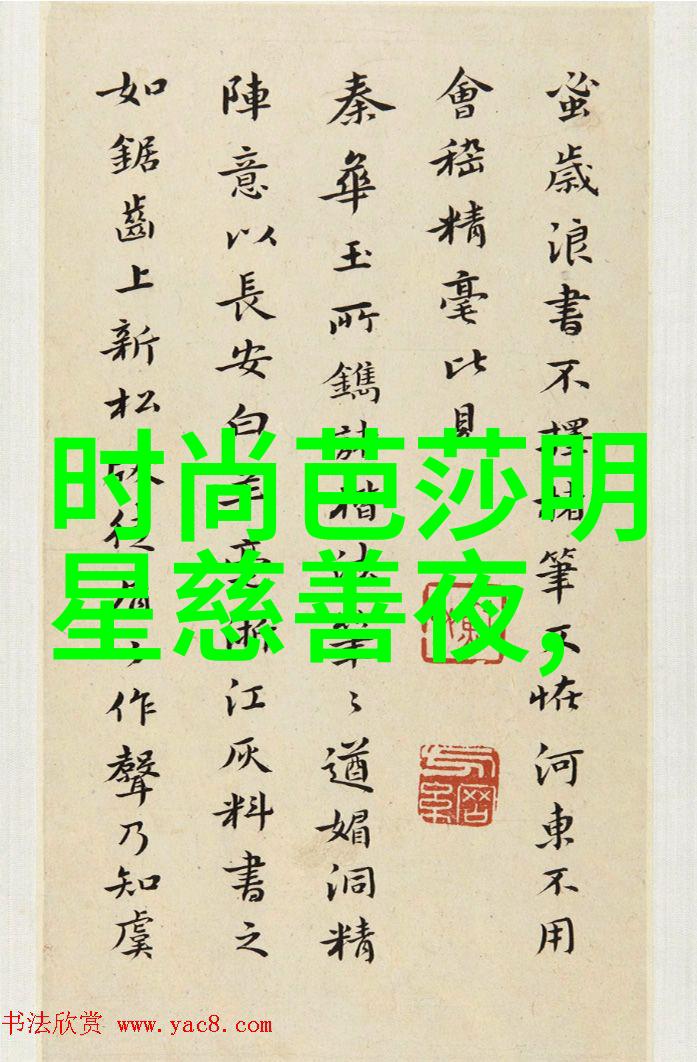 蚤歲浪書不擇楮筆不恠河東不用
會稽精毫比見
秦華玉所鐫楷法筆〻遒媚洞精
陣意以長安白羊江灰料書之
如鋸齒上新松作聲乃知虞
时尚芭莎明
星慈善夜,
书法欣赏 www.yac8.com